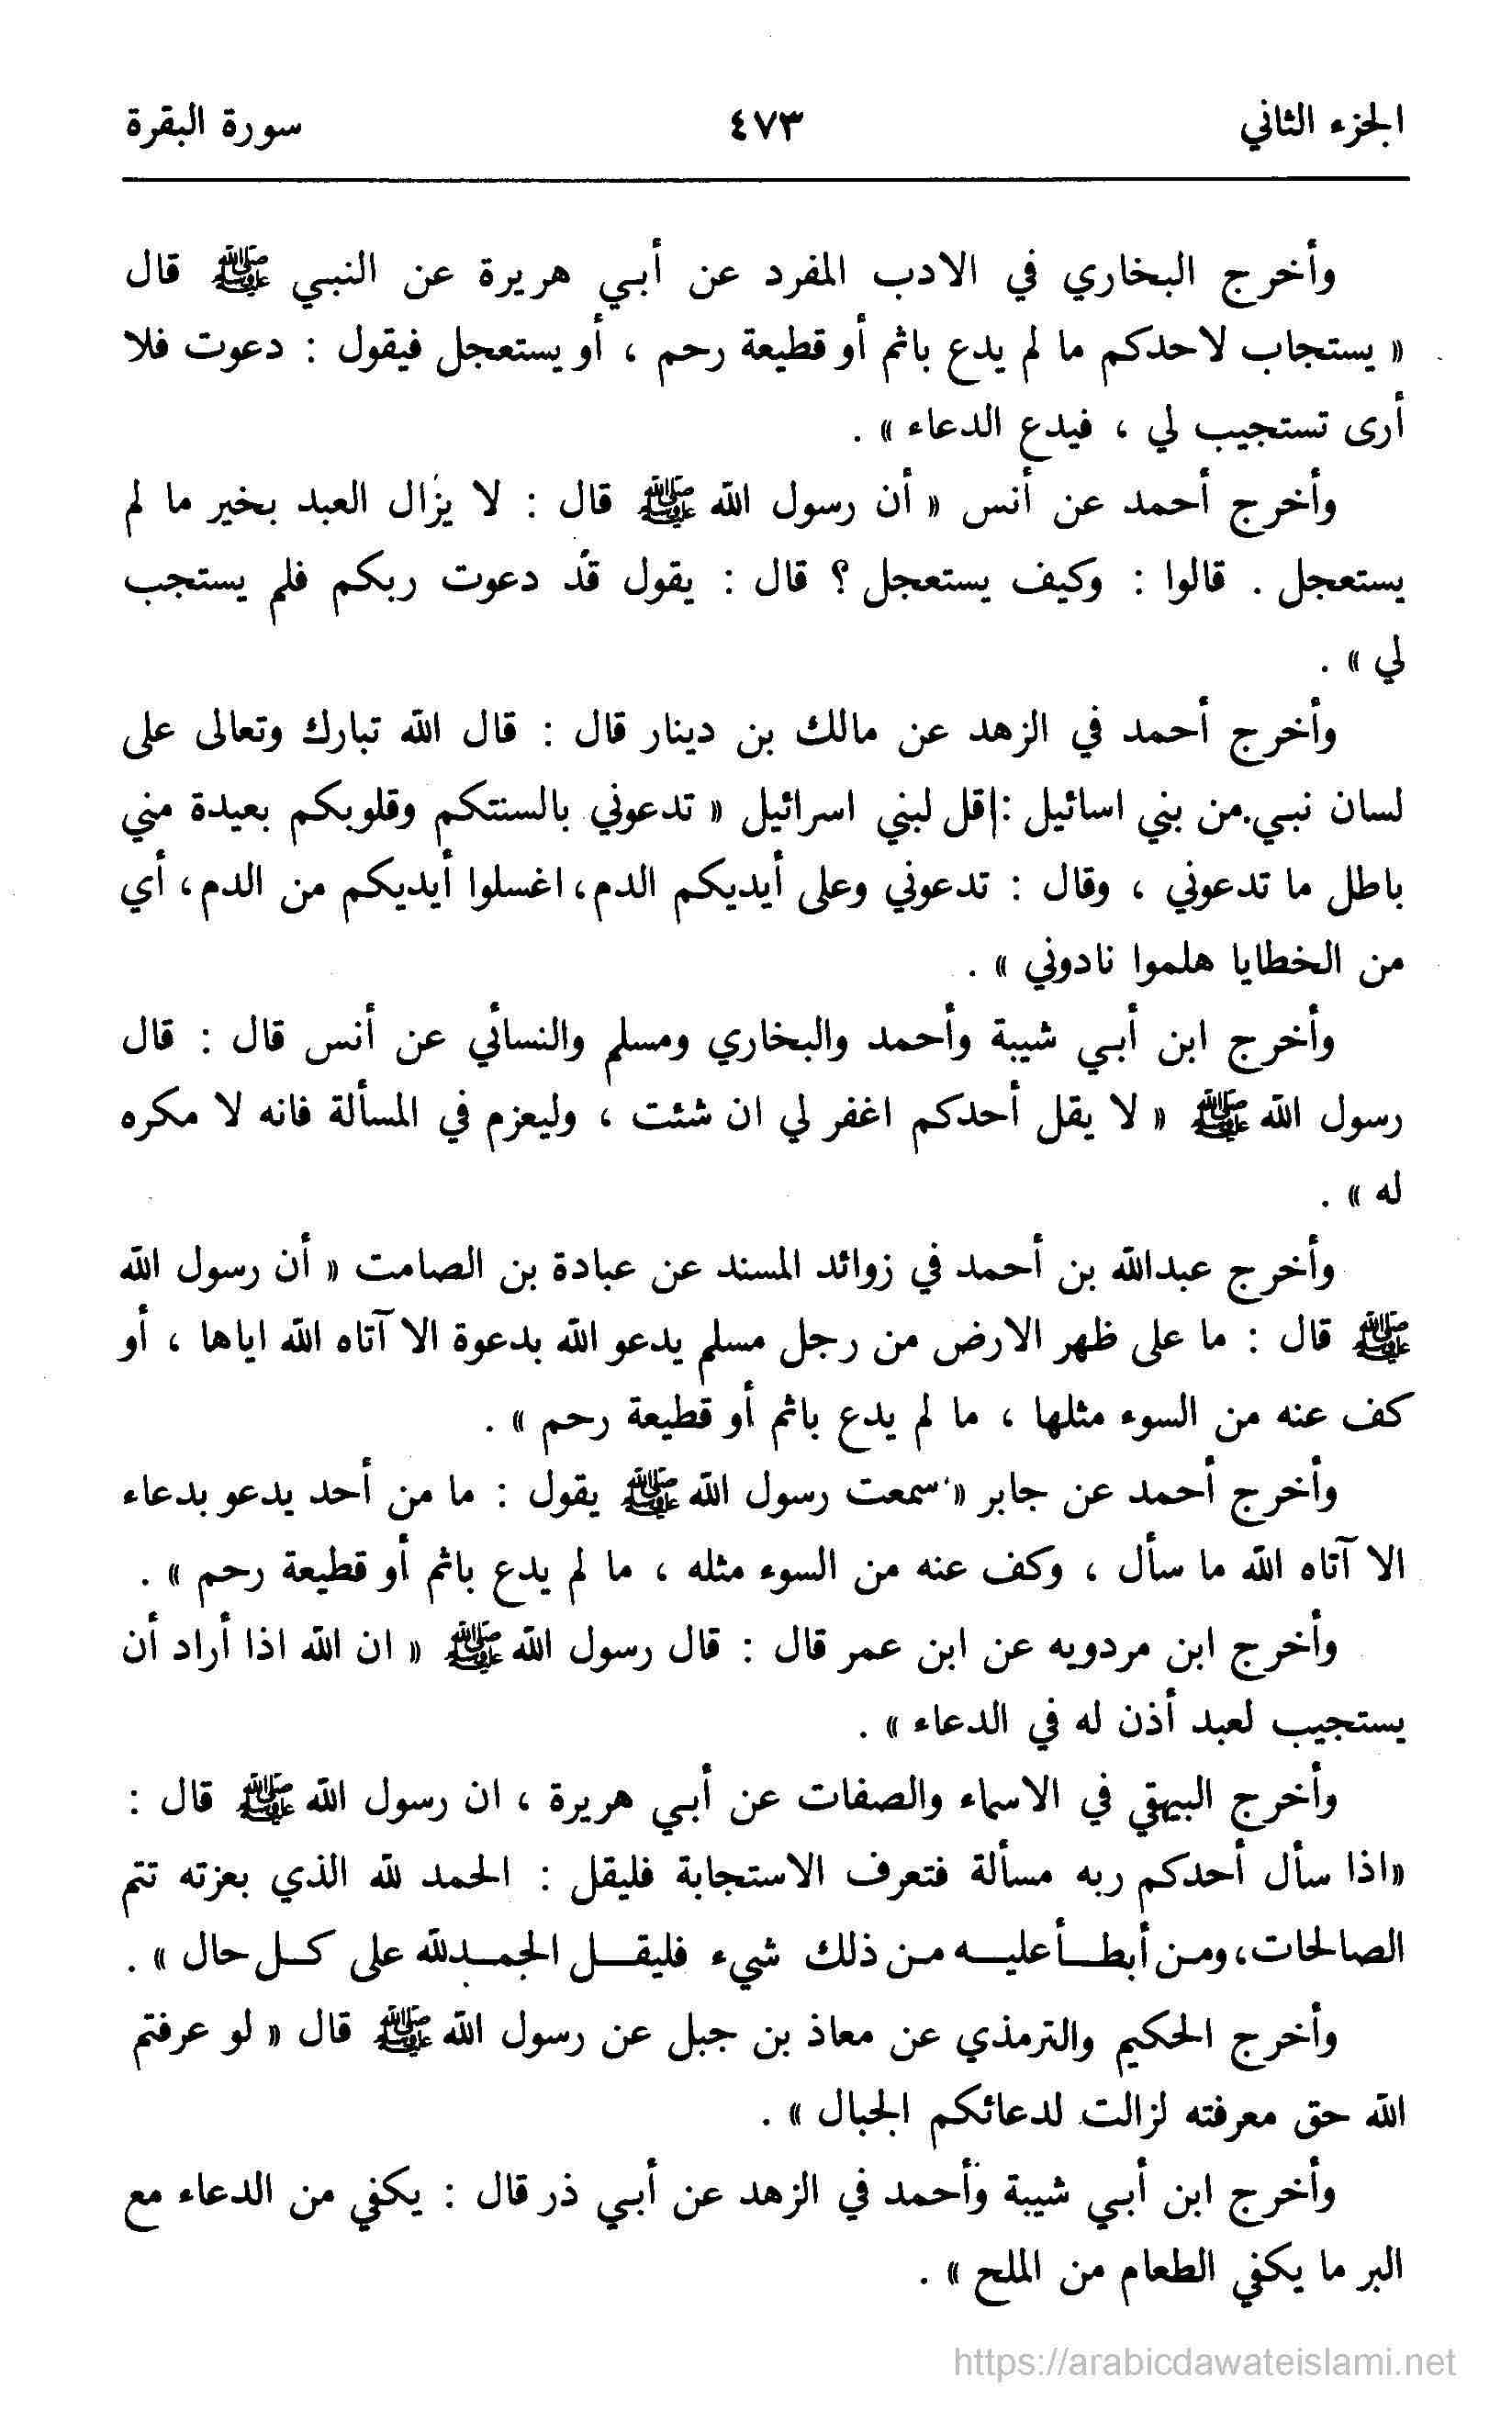 الجزء الثاني ٤٧٣ سورة البقرة
وأخرج البخاري في الادب المفرد عن أبي هريرة عن النبي ﷺ قال
« يستجاب لاحدكم ما لم يدع باثم أو قطيعة رحم ، أو يستعجل فيقول : دعوت فلا
أرى تستجيب لي ، فيدع الدعاء » .
وأخرج أحمد عن أنس « أن رسول الله ﷺ قال : لا يزال العبد بخير ما لم
يستعجل . قالوا : وكيف يستعجل ؟ قال : يقول قد دعوت ربكم فلم يستجب
لي » .
وأخرج أحمد في الزهد عن مالك بن دينار قال : قال الله تبارك وتعالى على
لسان نبي من بني اسائيل : قل لبني اسرائيل « تدعوني بالسنتكم وقلوبكم بعيدة مني
باطل ما تدعوني ، وقال : تدعوني وعلى أيديكم الدم، اغسلوا أيديكم من الدم، أي
من الخطايا هلموا نادوني » .
وأخرج ابن أبي شيبة وأحمد والبخاري ومسلم والنسائي عن أنس قال : قال
رسول الله ﷺ « لا يقل أحدكم اغفر لي ان شئت ، وليعزم في المسألة فانه لا مكره
له » .
وأخرج عبدالله بن أحمد في زوائد المسند عن عبادة بن الصامت « أن رسول الله
ﷺ قال : ما على ظهر الارض من رجل مسلم يدعو الله بدعوة الا آتاه الله اياها ، أو
كف عنه من السوء مثلها ، ما لم يدع باثم أو قطيعة رحم » .
وأخرج أحمد عن جابر « سمعت رسول الله ﷺ يقول : ما من أحد يدعو بدعاء
الا آتاه الله ما سأل ، وكف عنه من السوء مثله ، ما لم يدع باثم أو قطيعة رحم » .
وأخرج ابن مردويه عن ابن عمر قال : قال رسول الله ﷺ « ان الله اذا أراد أن
يستجيب لعبد أذن له في الدعاء » .
وأخرج البيهقي في الاسماء والصفات عن أبي هريرة ، ان رسول الله ﷺ قال :
«اذا سأل أحدكم ربه مسألة فتعرف الاستجابة فليقل : الحمد لله الذي بعزته تتم
الصالحات، ومن أبطأ عليه من ذلك شيء فليقل الحمدلله على كل حال » .
وأخرج الحكيم والترمذي عن معاذ بن جبل عن رسول الله ﷺ قال « لو عرفتم
الله حق معرفته لزالت لدعائكم الجبال » .
وأخرج ابن أبي شيبة وأحمد في الزهد عن أبي ذر قال : يكفي من الدعاء مع
البر ما يكفي الطعام من الملح » .
https://arabicdawateislami.net